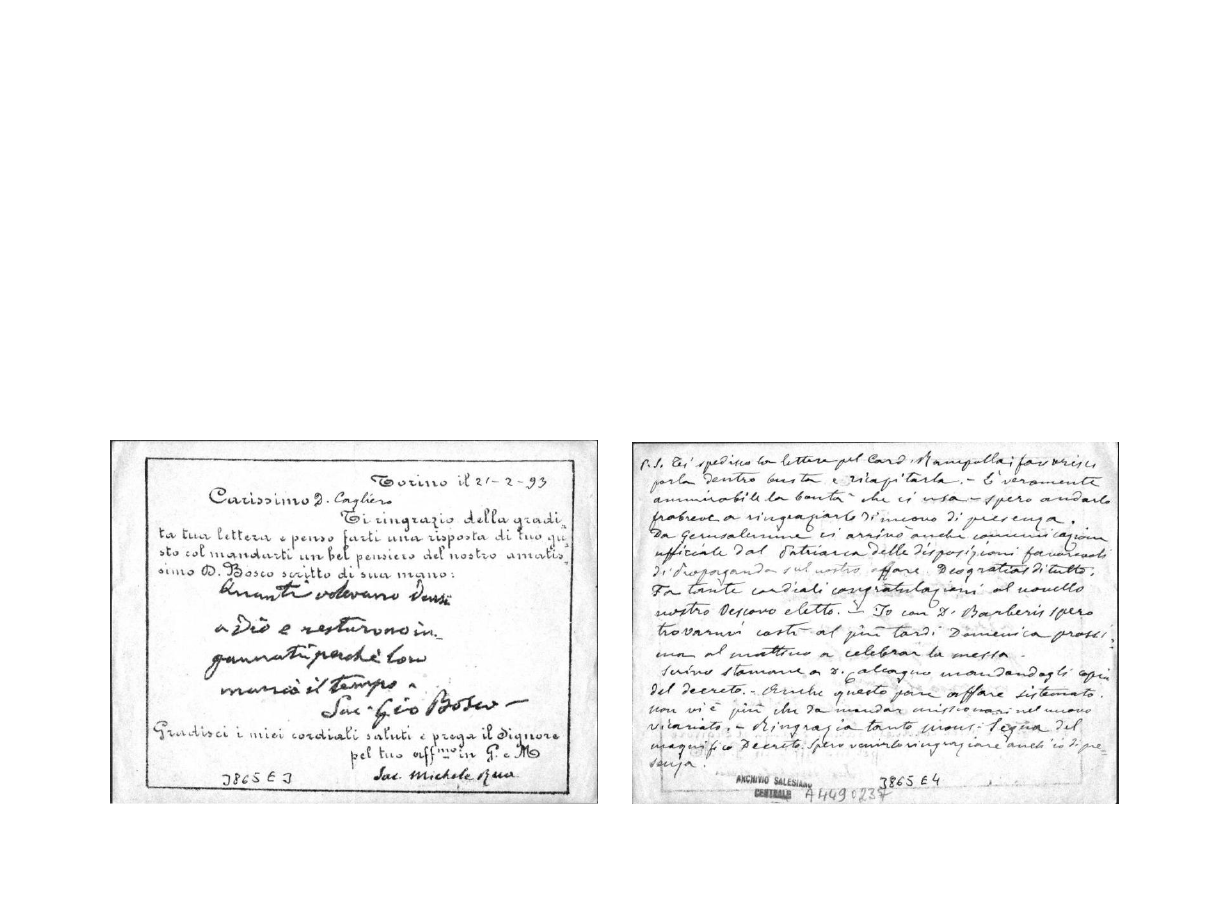 Torino il 21-2-93
Carissimo D. Cagliero
Ti ringrazio della gradi=
ta tua lettera e penso farti una risposta di tuo gu=
sto col mandarti un bel pensiero del nostro amatis=
simo D. Bosco scritto di sua mano:
Quanti volevano darsi
a Dio e restarono in-
gannati perchè loro
mancò il tempo.
Sac. Gio Bosco
Gradisci i miei cordiali saluti e prega il Signore
pel tuo aff.mo in G. e M
Sac. Michele Rua
3865 E 3
P.S. Ti spedisco lettera pel Card. Rampolla; favorisci
porla dentro busta e ricapitarla. - È veramente
ammirabile la bontà che ci usa - spero andarlo
fra breve a ringraziarlo di nuovo di presenza.
Da Gerusalemme ci arrivò anche comunicazione
ufficiale dal Patriarca delle disposizioni favorevoli
di Propaganda sul nostro affare. Deo gratias di tutto.
Fa tante cordiali congratulazioni al novello
nostro Vescovo eletto. - Io con D. Barberis spero
trovarmi costì al più tardi Domenica prossi=
ma al mattino a celebrar la messa.
Scrivo stamane a D. Calcagno mandandogli copia
del decreto. - Anche questo pare affare sistemato.
non vi è più che da mandar missionari nel nuovo
vicariato. - Ringrazia tanto mons. Segna del
magnifico Decreto. Spero venirlo ringraziare anch'io di pre=
senza.
ARCHIVIO SALESIANO
CENTRALE
A4490237
3865 E4